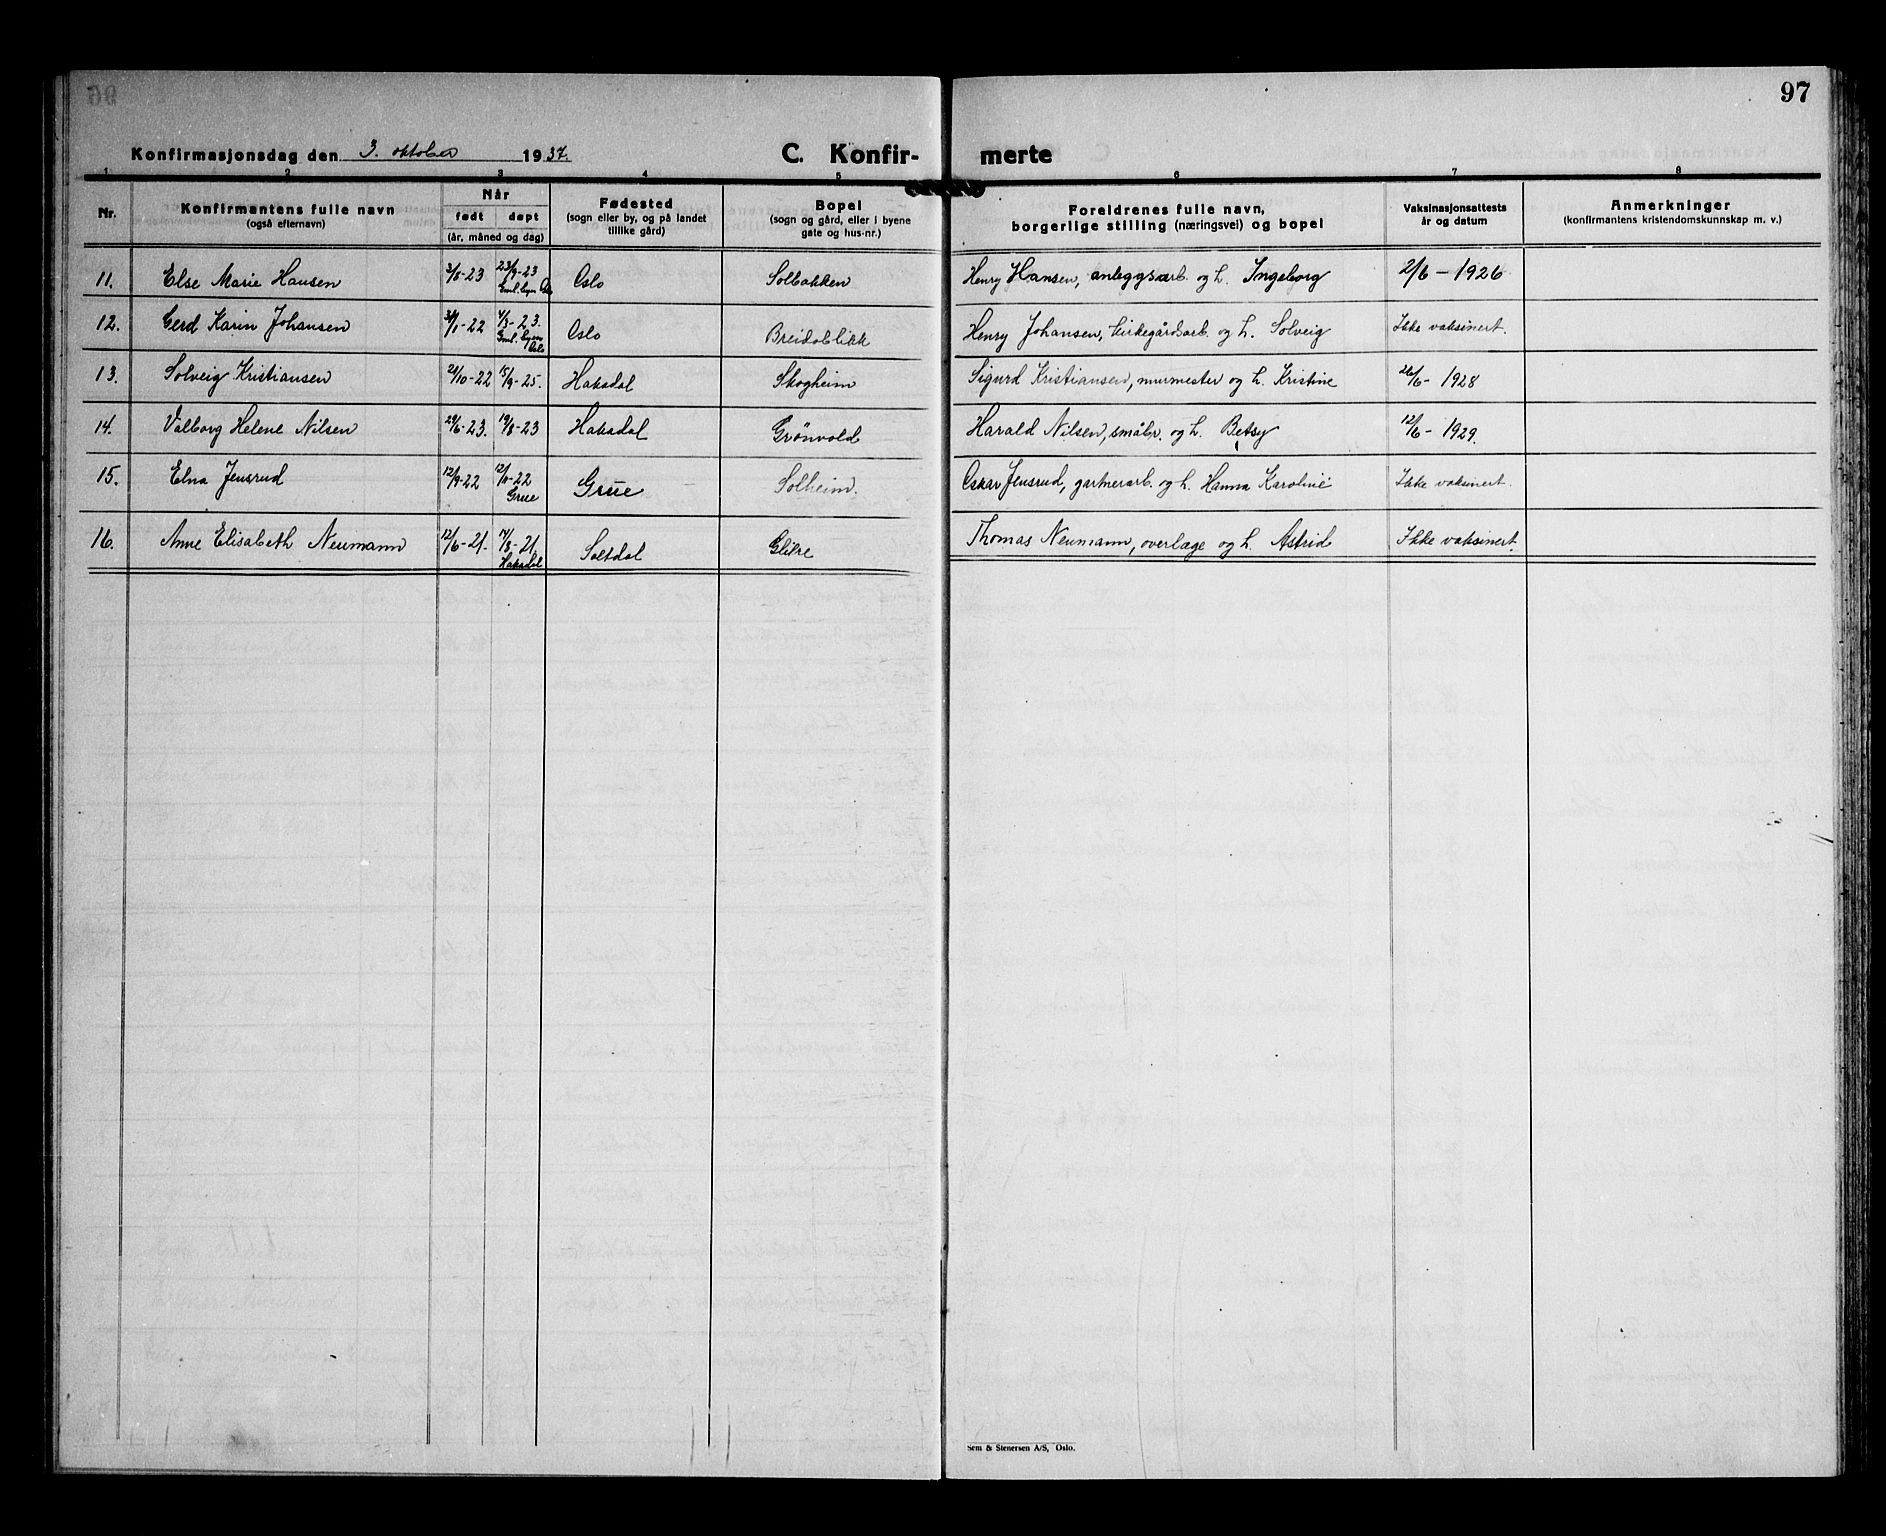 97
Konfirmasjonsdag den 3. oktober 1937.
C. Konfir- merte
1 2 3 4 5 6 7 8
Nr.
Konfirmantens fulle navn
(også efternavn)
Når
født døpt
(år, måned og dag)
Fødested
(sogn eller by, og på landet
tillike gård)
Bopel
(sogn og gård, eller i byene
gate og hus-nr.)
Foreldrenes fulle navn,
borgerlige stilling (næringsvei) og bopel
Vaksinasjonsattests
år og datum
Anmerkninger
(konfirmantens kristendomskunnskap m. v.)
11. Else Marie Hansen 3/8-23 23/9-23 Oslo Solbakken Henry Hansen, anleggsarb. og h. Ingeborg 2/6 - 1926
Gml. byen Oslo
12. Gerd Karin Johansen 4/3-23. Oslo Breidablikk Henry Johansen, kirkegårdsarb. og h. Solveig Ikke vaksinert.
Gml. byen
Oslo
13. Solveig Kristiansen 21/10-22 15/9-25. Hakadal Skogheim Sigurd Kristiansen, murmester og h. Kristine 26/6 - 1928
14. Valborg Helene Nilsen 29/6-23. 19/8-23 Hakadal Grønvold Harald Nilsen, småbr. og h. Betsy 12/6 - 1929.
15. Elna Jensrud 12/9-22 Grue Solheim. Oskar Jensrud, gartnerarb. og h. Hanna Karoline Ikke vaksinert.
Grue
16. Anne Elisabeth Neumann 12/6-21. 14/8-21 Saltdal Glitre Thomas Neumann, overlæge og h. Astrid Ikke vaksinert.
Hakadal
Sem & Stenersen A/S, Oslo.